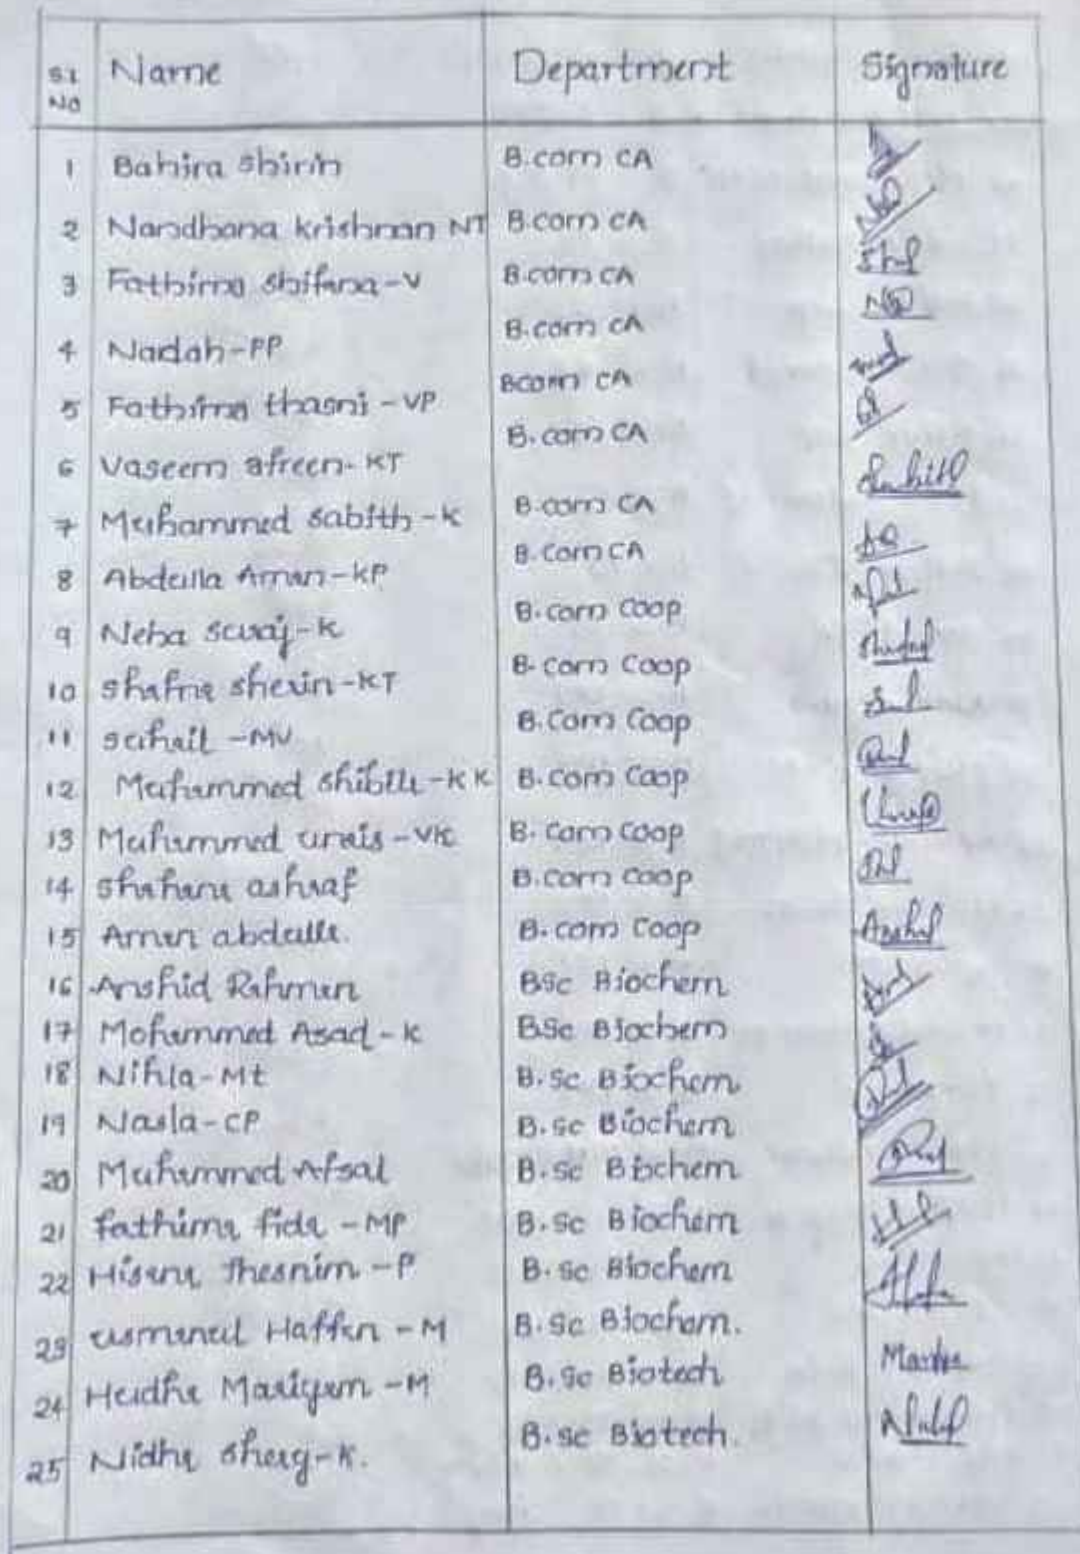 SL No Name Department Signature
1 Bahira Shirin B.com CA
2 Nandhana krishnan NT B.com CA
3 Fathima Shifana-V B.com CA Shaf
4 Nadah-PP B.com CA
5 Fathima thasni-VP Bcom CA
6 Vaseem afreen-KT B.com CA
7 Muhammed Sabith-K B.com CA Sabith
8 Abdulla Aman-KP B.com CA
9 Neha Suraj-K B.com Coop
10 Shafna Sherin-KT B.com Coop
11 Suhail-MV B.Com Coop
12 Muhammed Shibili-KK B.com Coop
13 Muhammed unais-VK B.com Coop
14 Shahana ashraf B.com Coop
15 Amen abdulla. B.com Coop
16 Anshid Rahman BSc Biochem
17 Mohammed Asad-K BSc Biochem
18 Nihla-Mt B.Sc Biochem
19 Nasla-CP B.Sc Biochem
20 Muhammed Afsal B.Sc Biochem
21 fathima fida-MP B.Sc Biochem
22 Hisana Thesnim-P B.Sc Biochem
23 Haffan-M B.Sc Biochem.
24 Mariyam-M B.Sc Biotech
25 Nidha K. B.Sc Biotech.